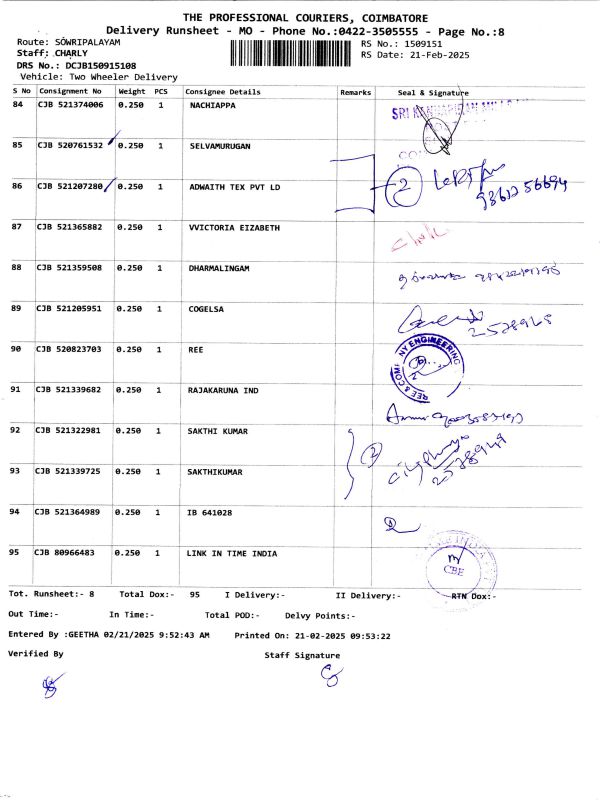 THE PROFESSIONAL COURIERS, COIMBATORE
Delivery Runsheet - MO - Phone No.:0422-3505555 - Page No.:8
Route: SOWRIPALAYAM RS No.: 1509151
Staff: CHARLY RS Date: 21-Feb-2025
DRS No.: DCJB150915108
Vehicle: Two Wheeler Delivery
S No Consignment No Weight PCS Consignee Details Remarks Seal & Signature
84 CJB 521374006 0.250 1 NACHIAPPA
85 CJB 520761532 0.250 1 SELVAMURUGAN
86 CJB 521207280 0.250 1 ADWAITH TEX PVT LD 2
87 CJB 521365882 0.250 1 VVICTORIA EIZABETH
88 CJB 521359508 0.250 1 DHARMALINGAM
89 CJB 521205951 0.250 1 COGELSA 2578968
90 CJB 520823703 0.250 1 REE REE & COMPANY ENGINEERING
91 CJB 521339682 0.250 1 RAJAKARUNA IND
92 CJB 521322981 0.250 1 SAKTHI KUMAR 2
93 CJB 521339725 0.250 1 SAKTHIKUMAR
94 CJB 521364989 0.250 1 IB 641028
95 CJB 80966483 0.250 1 LINK IN TIME INDIA CBE
Tot. Runsheet:- 8 Total Dox:- 95 I Delivery:- II Delivery:- RTN Dox:-
Out Time:- In Time:- Total POD:- Delvy Points:-
Entered By :GEETHA 02/21/2025 9:52:43 AM Printed On: 21-02-2025 09:53:22
Verified By Staff Signature